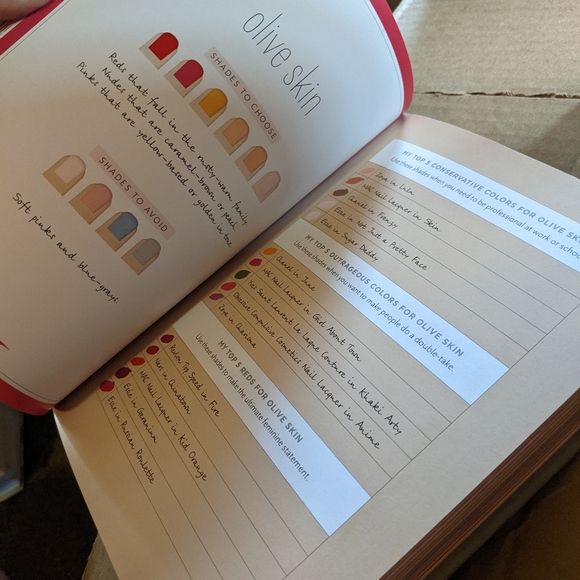 olive skin
SHADES TO CHOOSE
Reds that fall in the rusty-warm family
Nudes that are caramel-brown or peach
Pinks that are yellow-based or golden in tone
SHADES TO AVOID
Soft pinks and blue-grays
MY TOP 5 CONSERVATIVE COLORS FOR OLIVE SKIN
Use these shades when you need to be professional at work or school.
Zoya in Lulu
MAC Nail Lacquer in Skin
Chanel in Frenzy
Essie in Not Just a Pretty Face
Essie in Sugar Daddy
MY TOP 5 OUTRAGEOUS COLORS FOR OLIVE SKIN
Use these shades when you want to make people do a double-take.
Chanel in June
MAC Nail Lacquer in Girl About Town
Yves Saint Laurent La Laque Couture in Khaki Arty
Obsessive Compulsive Cosmetics Nail Lacquer in Anime
Zoya in Charisma
MY TOP 5 REDS FOR OLIVE SKIN
Use these shades to make the ultimate feminine statement.
Revlon Top Speed in Fire
Nars in Dominator
MAC Nail Lacquer in Kid Orange
Essie in Geranium
Essie in Russian Roulette